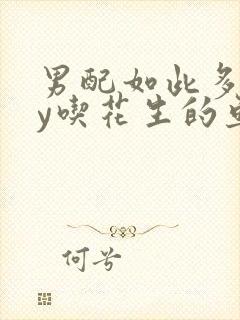 男配如此多
y喫花生的
何兮